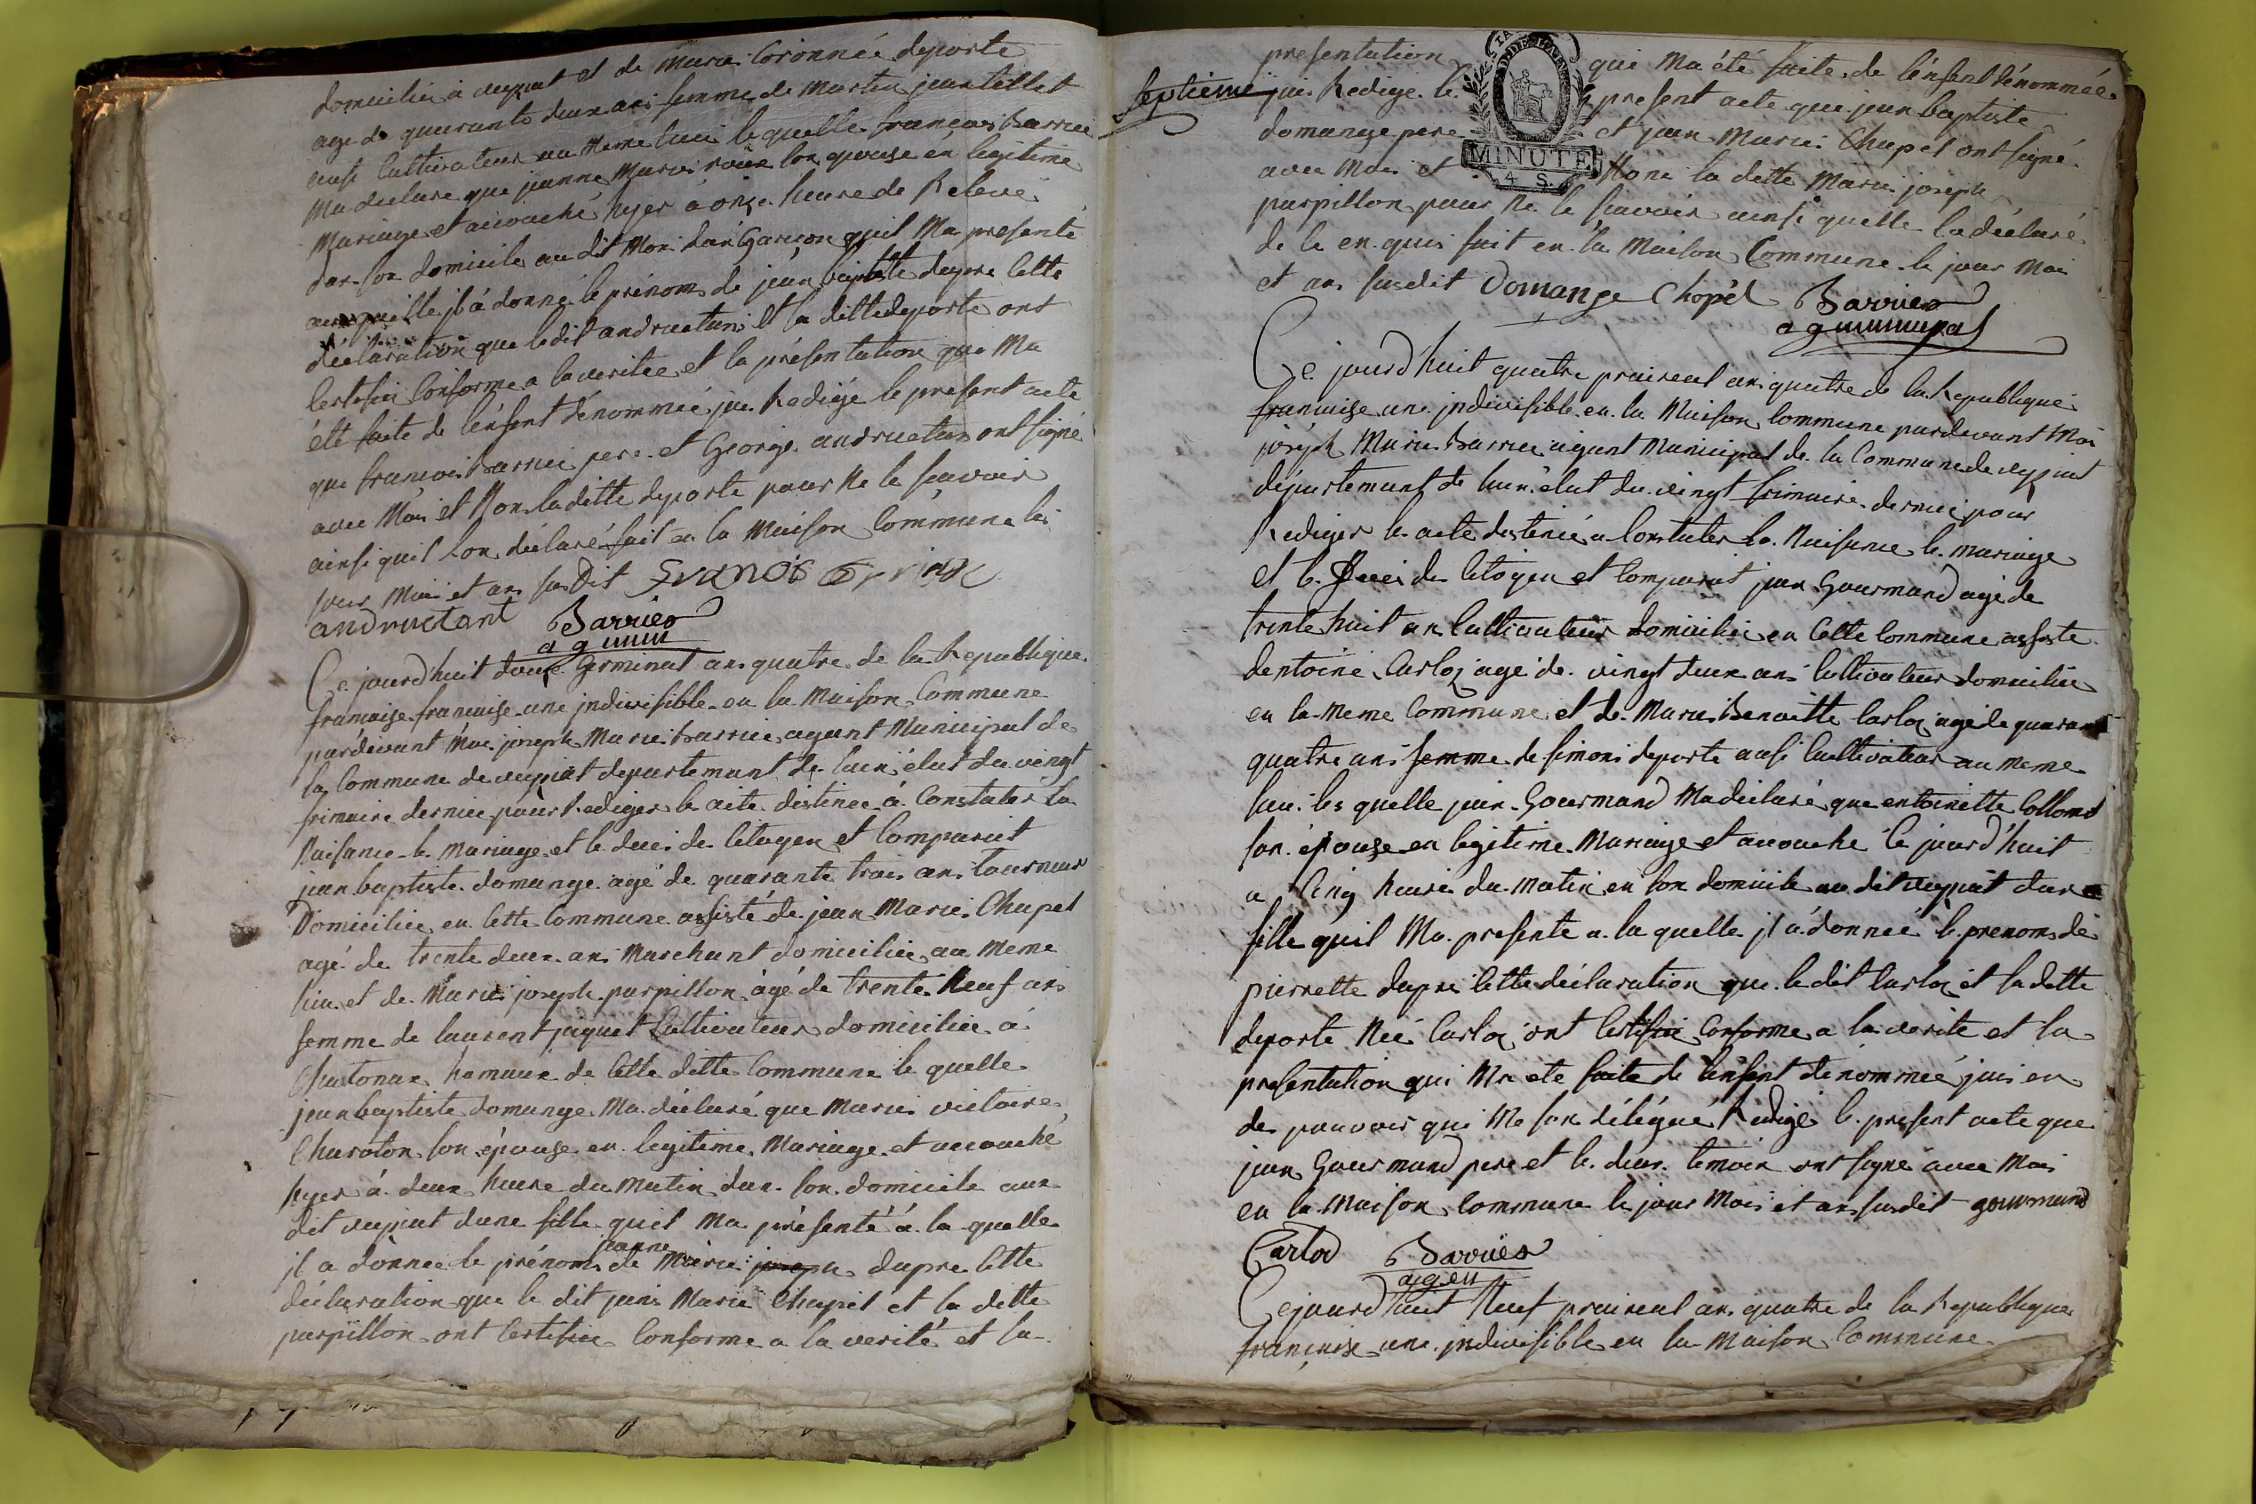 domicilié a veyziat et de Marie Coronnée deporte
agé de quarante deux ans femme de Martin jean tillet
ausi Cultivateur au Meme lieu le quelle françois Barrier
Ma declare que jeanne Marie son epouse en legitime
Mariage et acouché hyer à onze heure de Relevé
dan son domicile au dit Mon dun Garçon quil Ma presenté
au quelle jl à donné le prénom de jean baptiste dapre Cette
déclaration que ledit andructan et la ditte deporte ont
Certifié Conforme a la veritée et la présentation qui Ma
été faite de l'énfent dénommée jai Redigé le present acte
que françois Barrier pere et George andructan ont signé
avec Moi et Non la ditte deporte pour Ne le savoir
ainsi quil lon déclaré fait en la Maison Commune les
jour Moi et an susDit
andructant Barrier
ag mun
Ce jourd'huit douze Germinal an quatre de la Republique
francaise francaise une jndivisible en la Maison Commune
pardevant Moi joseph Marie Barrier agent Municipal de
la Commune de veyziat departement de lain élut du vingt
frimaire dernier pour Rediger le acte distinée à Constater la
Naisance le Mariage et le decei de Citoyen et Comparoit
jean baptiste domange agé de quarante trois an tourneur
Domiciliée en Cette Commune assisté de jean Marie Chapel
agé de trente deux an Marchant domiciliée au Meme
lieu et de Marie joseph parpillon àgé de trente Neuf an
femme de laurent jaquet Cultivateur domiciliée à
Chatonax hamaux de Cette ditte Commune le quelle
jean baptiste domange Ma déclaré que Marie victoire
Charoton son épouse en legitime Mariage et acouché
hyer à deux heure du Matin dan son domicile aux
dit veyziat dune fille quil Ma présenté à la quelle
jeanne
jl a donnée le prénom de Marie joseph dapre Cette
déclaration que le dit jean Marie Chapel et la ditte
parpillon ont Certifiée Conforme a la verité et la
presentation qui Ma été faite de l'énfent dénommée
septieme jai Redigé le present acte que jean baptiste
domange pere et jean Marie Chapel ont signé
avec Moi et Non la ditte Marie joseph
MINUTE
4 S.
parpillon pour Ne le savoir ainsi quelle la déclaré
de le en quis fait en la Maison Commune le jour Moi
et an susdit Domange Chapel Barrier
ag municipal
Ce jourd'huit quatre praireal an quatre de la Republique
francaise une jndivisible en la Maison Commune pardevant Moi
joséph Marie Barrier agent Municipal de la Commune de veyziat
département de lain élut du vingt frimaire dernier pour
Rediger le acte destinée a Constater la Naisance le mariage
et le Decei de Citoyen et Comparoit jean Gourmand agé de
trente huit an Cultivateur domiciliée en Cette Commune assiste
dentoine Carloz agé de vingt deux an Cultivateur domiciliée
en la Meme Commune et de Marie Benoitte Carloz agé de quarante
quatre ans femme de simon deporte ausi Cultivateur au meme
lieu les quelle jean Gourmand Ma déclaré que entoinette Collomb
son épouse en legitime Mariage et acouché Ce jourd'huit
a Cinq heure du Matin en son domicile au dit veyziat dune
fille quil Ma presente a la quelle jl a donnée le prenom de
pierrette dapré Cette déclaration que le dit Carloz et la ditte
deporte Née Carloz ont Certifié Conforme a la verite et la
presentation qui Ma ete faite de l'enfent dénommée jai en
de pouvoir qui Me son délégué Redigé le present acte que
jean Gourmand pere et le deux temoin ont signe avec Moi
en la Maison Commune le jour Moi et an susdit gourmand
Carlod Barrier
agen
Cejourd'huit Neuf praireal an quatre de la Republique
française une jndivisible en la Maison Commune